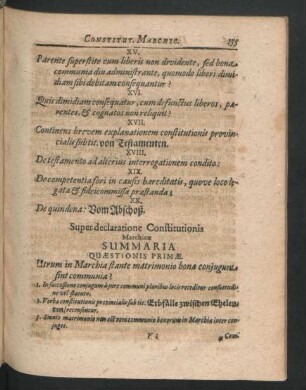 CONSTITUT. MARCHIC. 155
XV.
Parente superstite cum liberis non dividente, sed bona
communia diu administrante, quomodo liberi dimidiam
sibi debitam consequantur?
XVI.
Quis dimidiam consequatur, cum defunctus liberos, parentes,
& cognatos non reliquit?
XVII.
Continens brevem explanationem constitutionis provincialis
sub tit. von Testamenten.
XVIII.
De testamento ad alterius interrogationem condito:
XIX.
De competentia fori in causis hæreditatis, quove loco legata
& fideicommissa præstanda;
XX.
De quindena: Vom Abschoß.
Super declaratione Constitutionis
Marchicæ
SUMMARIA
QUÆSTIONIS PRIMÆ.
Utrum in Marchia stante matrimonio bona conjugum
sint communia?
1. In successione conjugum à jure communi pluribus locis receditur consuetudine
vel statuto.
2. Verba constitutionis provincialis sub tit. Erbfälle zwischen Eheleuten,
recensentur.
3. Stante matrimonio non est vera communio bonorum in Marchia inter conjuges.
V 2
4 Cons.